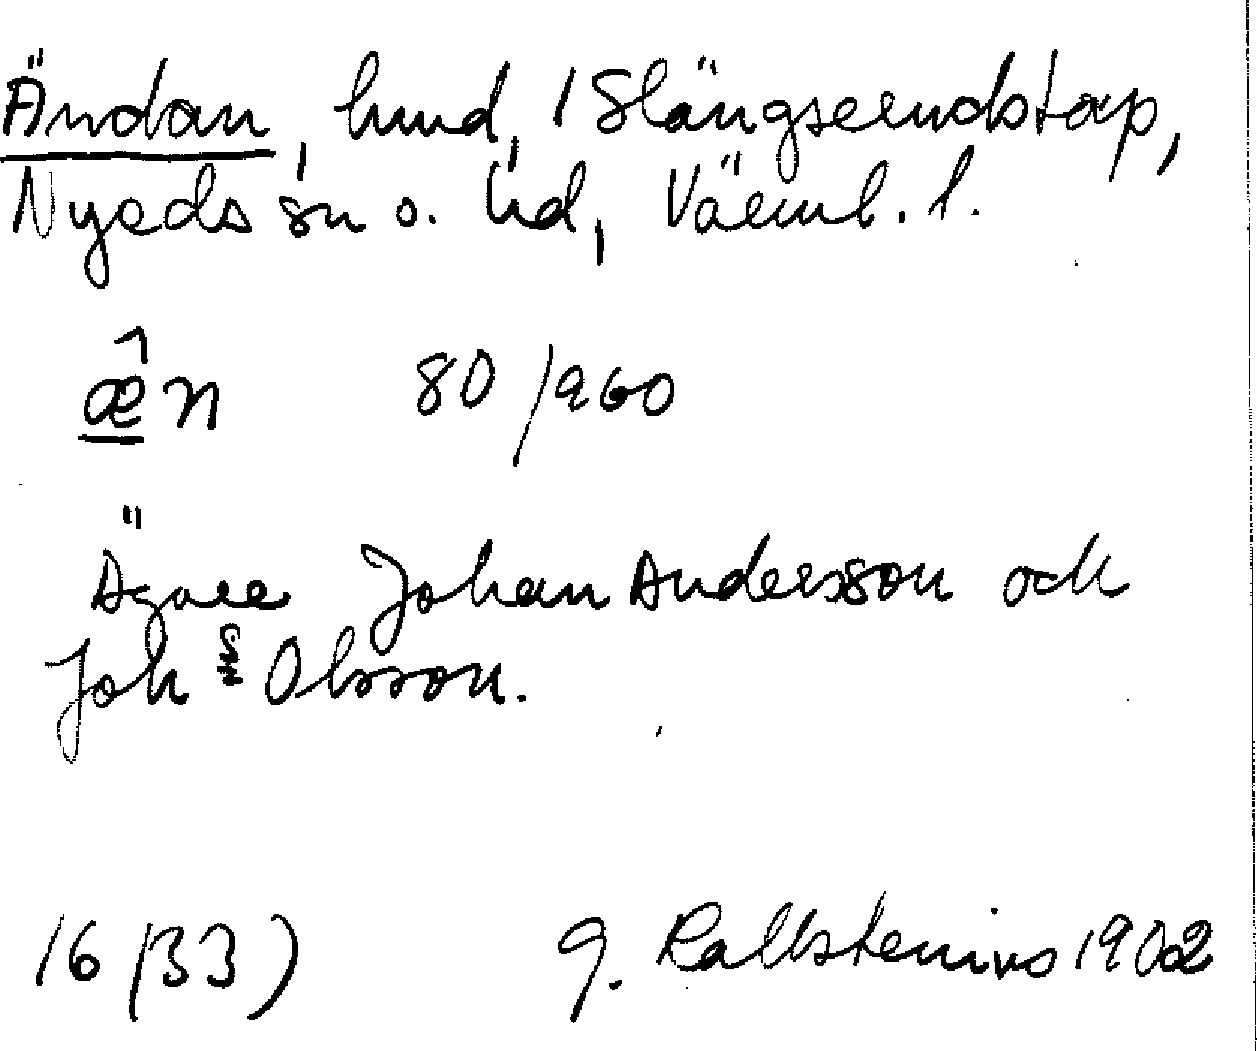 Ändan, hmd, 1 Slängserudstorp,
Nyeds sn o. hd, Värml. l.
æ̂n 80/260
Ägare Johan Andersson och
Joh⁠s Olsson.
16 (33) G. Kallstenius 1902